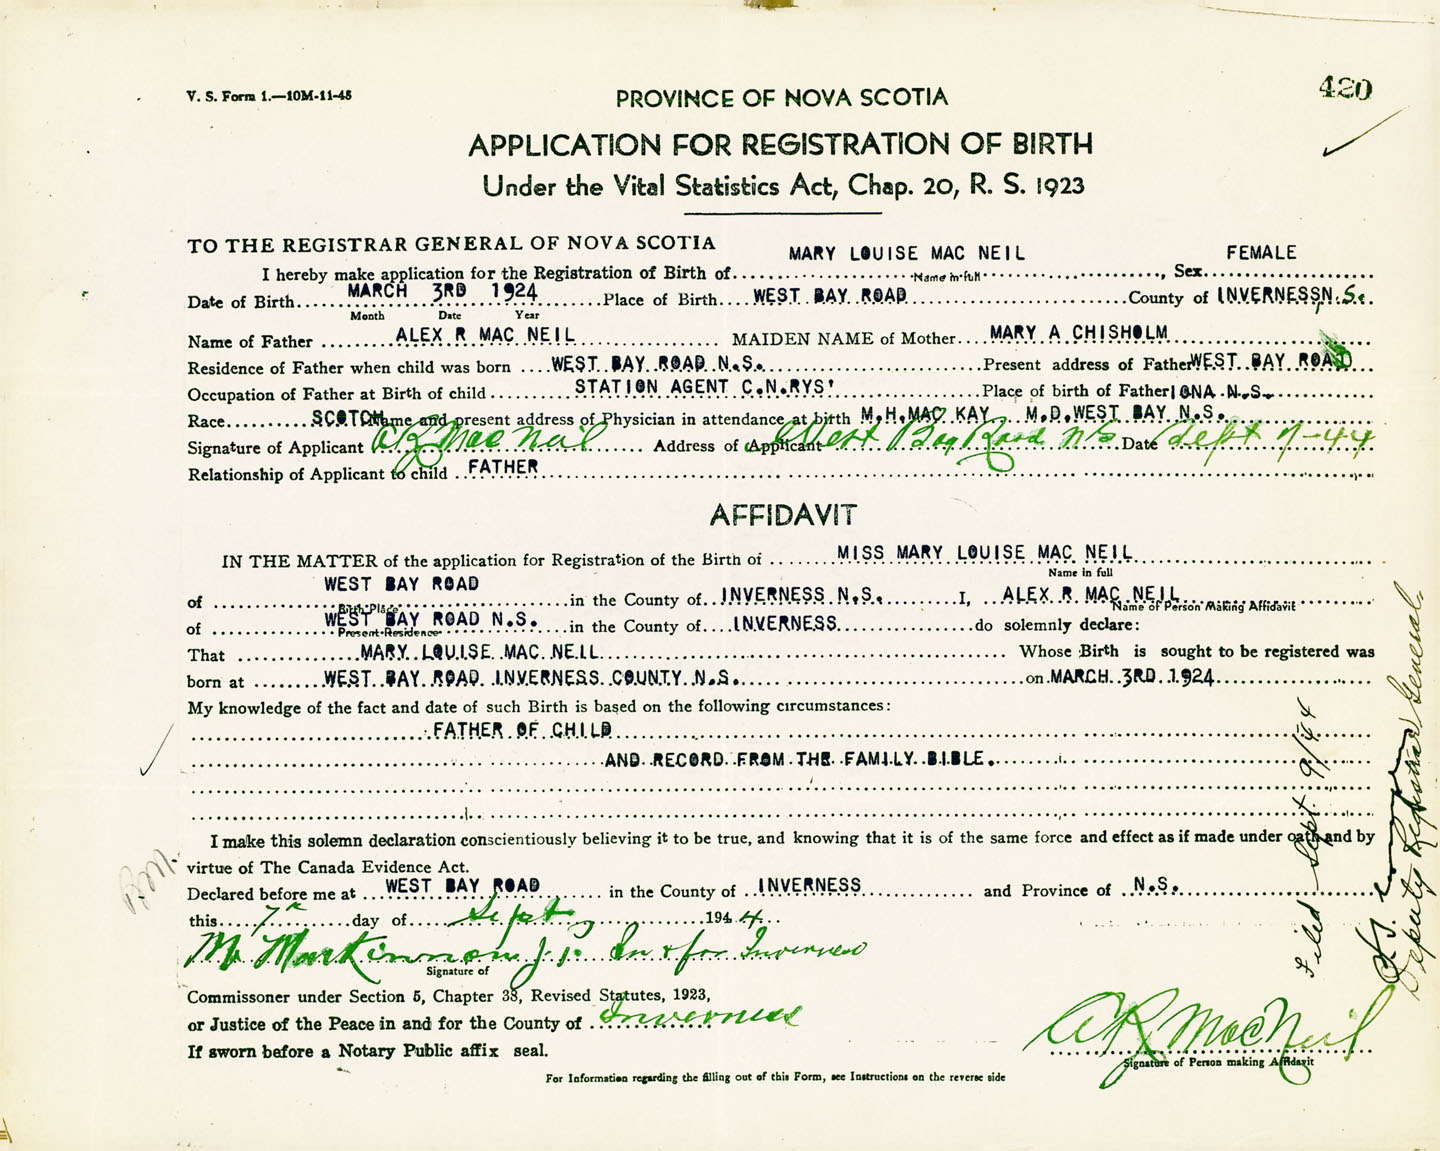 V. S. Form 1.—10M-11-43
420
PROVINCE OF NOVA SCOTIA
APPLICATION FOR REGISTRATION OF BIRTH
Under the Vital Statistics Act, Chap. 20, R. S. 1923
TO THE REGISTRAR GENERAL OF NOVA SCOTIA
I hereby make application for the Registration of Birth of MARY LOUISE MAC NEIL, Sex FEMALE
Name in full
Date of Birth MARCH 3RD 1924 Place of Birth WEST BAY ROAD County of INVERNESS N.S.
Month Date Year
Name of Father ALEX R MAC NEIL MAIDEN NAME of Mother MARY A CHISHOLM
Residence of Father when child was born WEST BAY ROAD N.S. Present address of Father WEST BAY ROAD
Occupation of Father at Birth of child STATION AGENT C.N.RYS' Place of birth of Father IONA N.S.
Race SCOTCH Name and present address of Physician in attendance at birth M.H.MAC KAY M.D.WEST BAY N.S.
Signature of Applicant A R MacNeil Address of Applicant West Bay Road N S Date Sept 7-44
Relationship of Applicant to child FATHER
AFFIDAVIT
IN THE MATTER of the application for Registration of the Birth of MISS MARY LOUISE MAC NEIL
Name in full
of WEST BAY ROAD in the County of INVERNESS N.S. I, ALEX R MAC NEIL
Birth Place Name of Person Making Affidavit
of WEST BAY ROAD N.S. in the County of INVERNESS do solemnly declare:
Present Residence
That MARY LOUISE MAC NEIL Whose Birth is sought to be registered was
born at WEST BAY ROAD INVERNESS COUNTY N.S. on MARCH 3RD 1924
My knowledge of the fact and date of such Birth is based on the following circumstances:
FATHER OF CHILD
AND RECORD FROM THE FAMILY BIBLE.
I make this solemn declaration conscientiously believing it to be true, and knowing that it is of the same force and effect as if made under oath and by
virtue of The Canada Evidence Act.
Declared before me at WEST BAY ROAD in the County of INVERNESS and Province of N.S.
this 7th day of Sept 1944
MacKinnon J.P. In & for Inverness
Signature of
Commissoner under Section 5, Chapter 38, Revised Statutes, 1923,
or Justice of the Peace in and for the County of Inverness
If sworn before a Notary Public affix seal.
A R MacNeil
Signature of Person making Affidavit
For Information regarding the filling out of this Form, see Instructions on the reverse side
Filed Sept. 9/44
Deputy Registrar General.